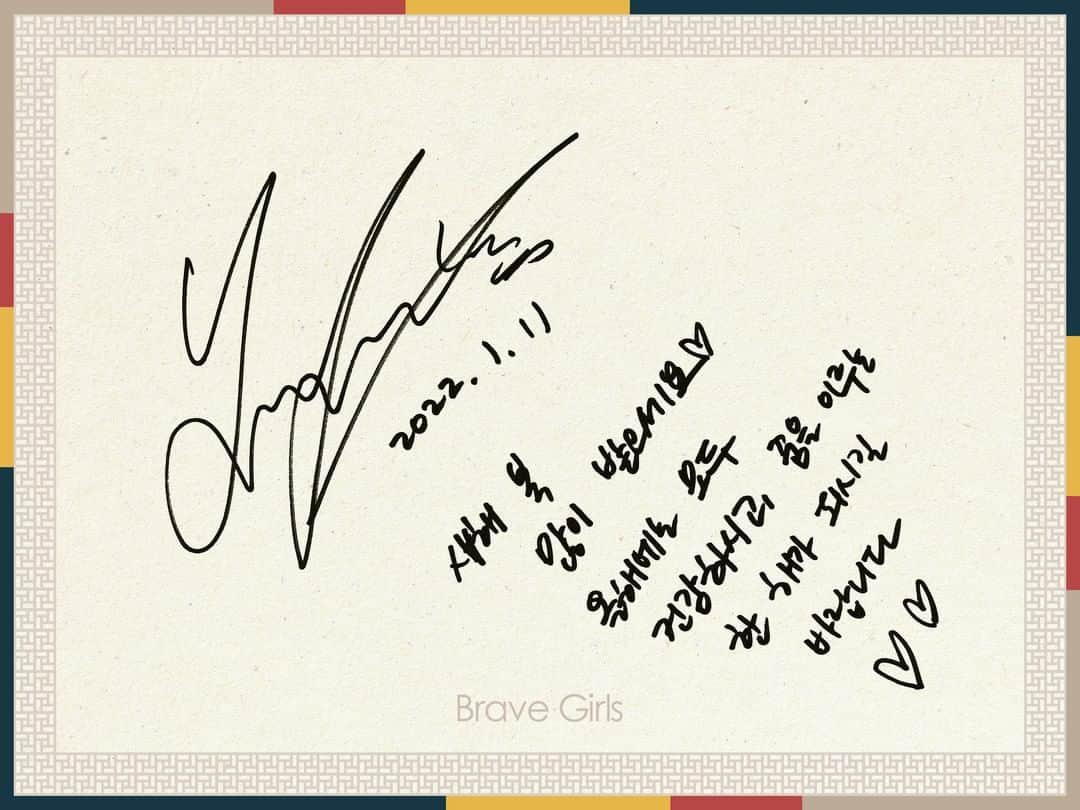 2022. 1. 11
새해 복
많이 받으세요♡
올해에는 모두
건강하시고 꿈을 이루는
한 해가 되시길
바랍니다
♡♡
Brave Girls